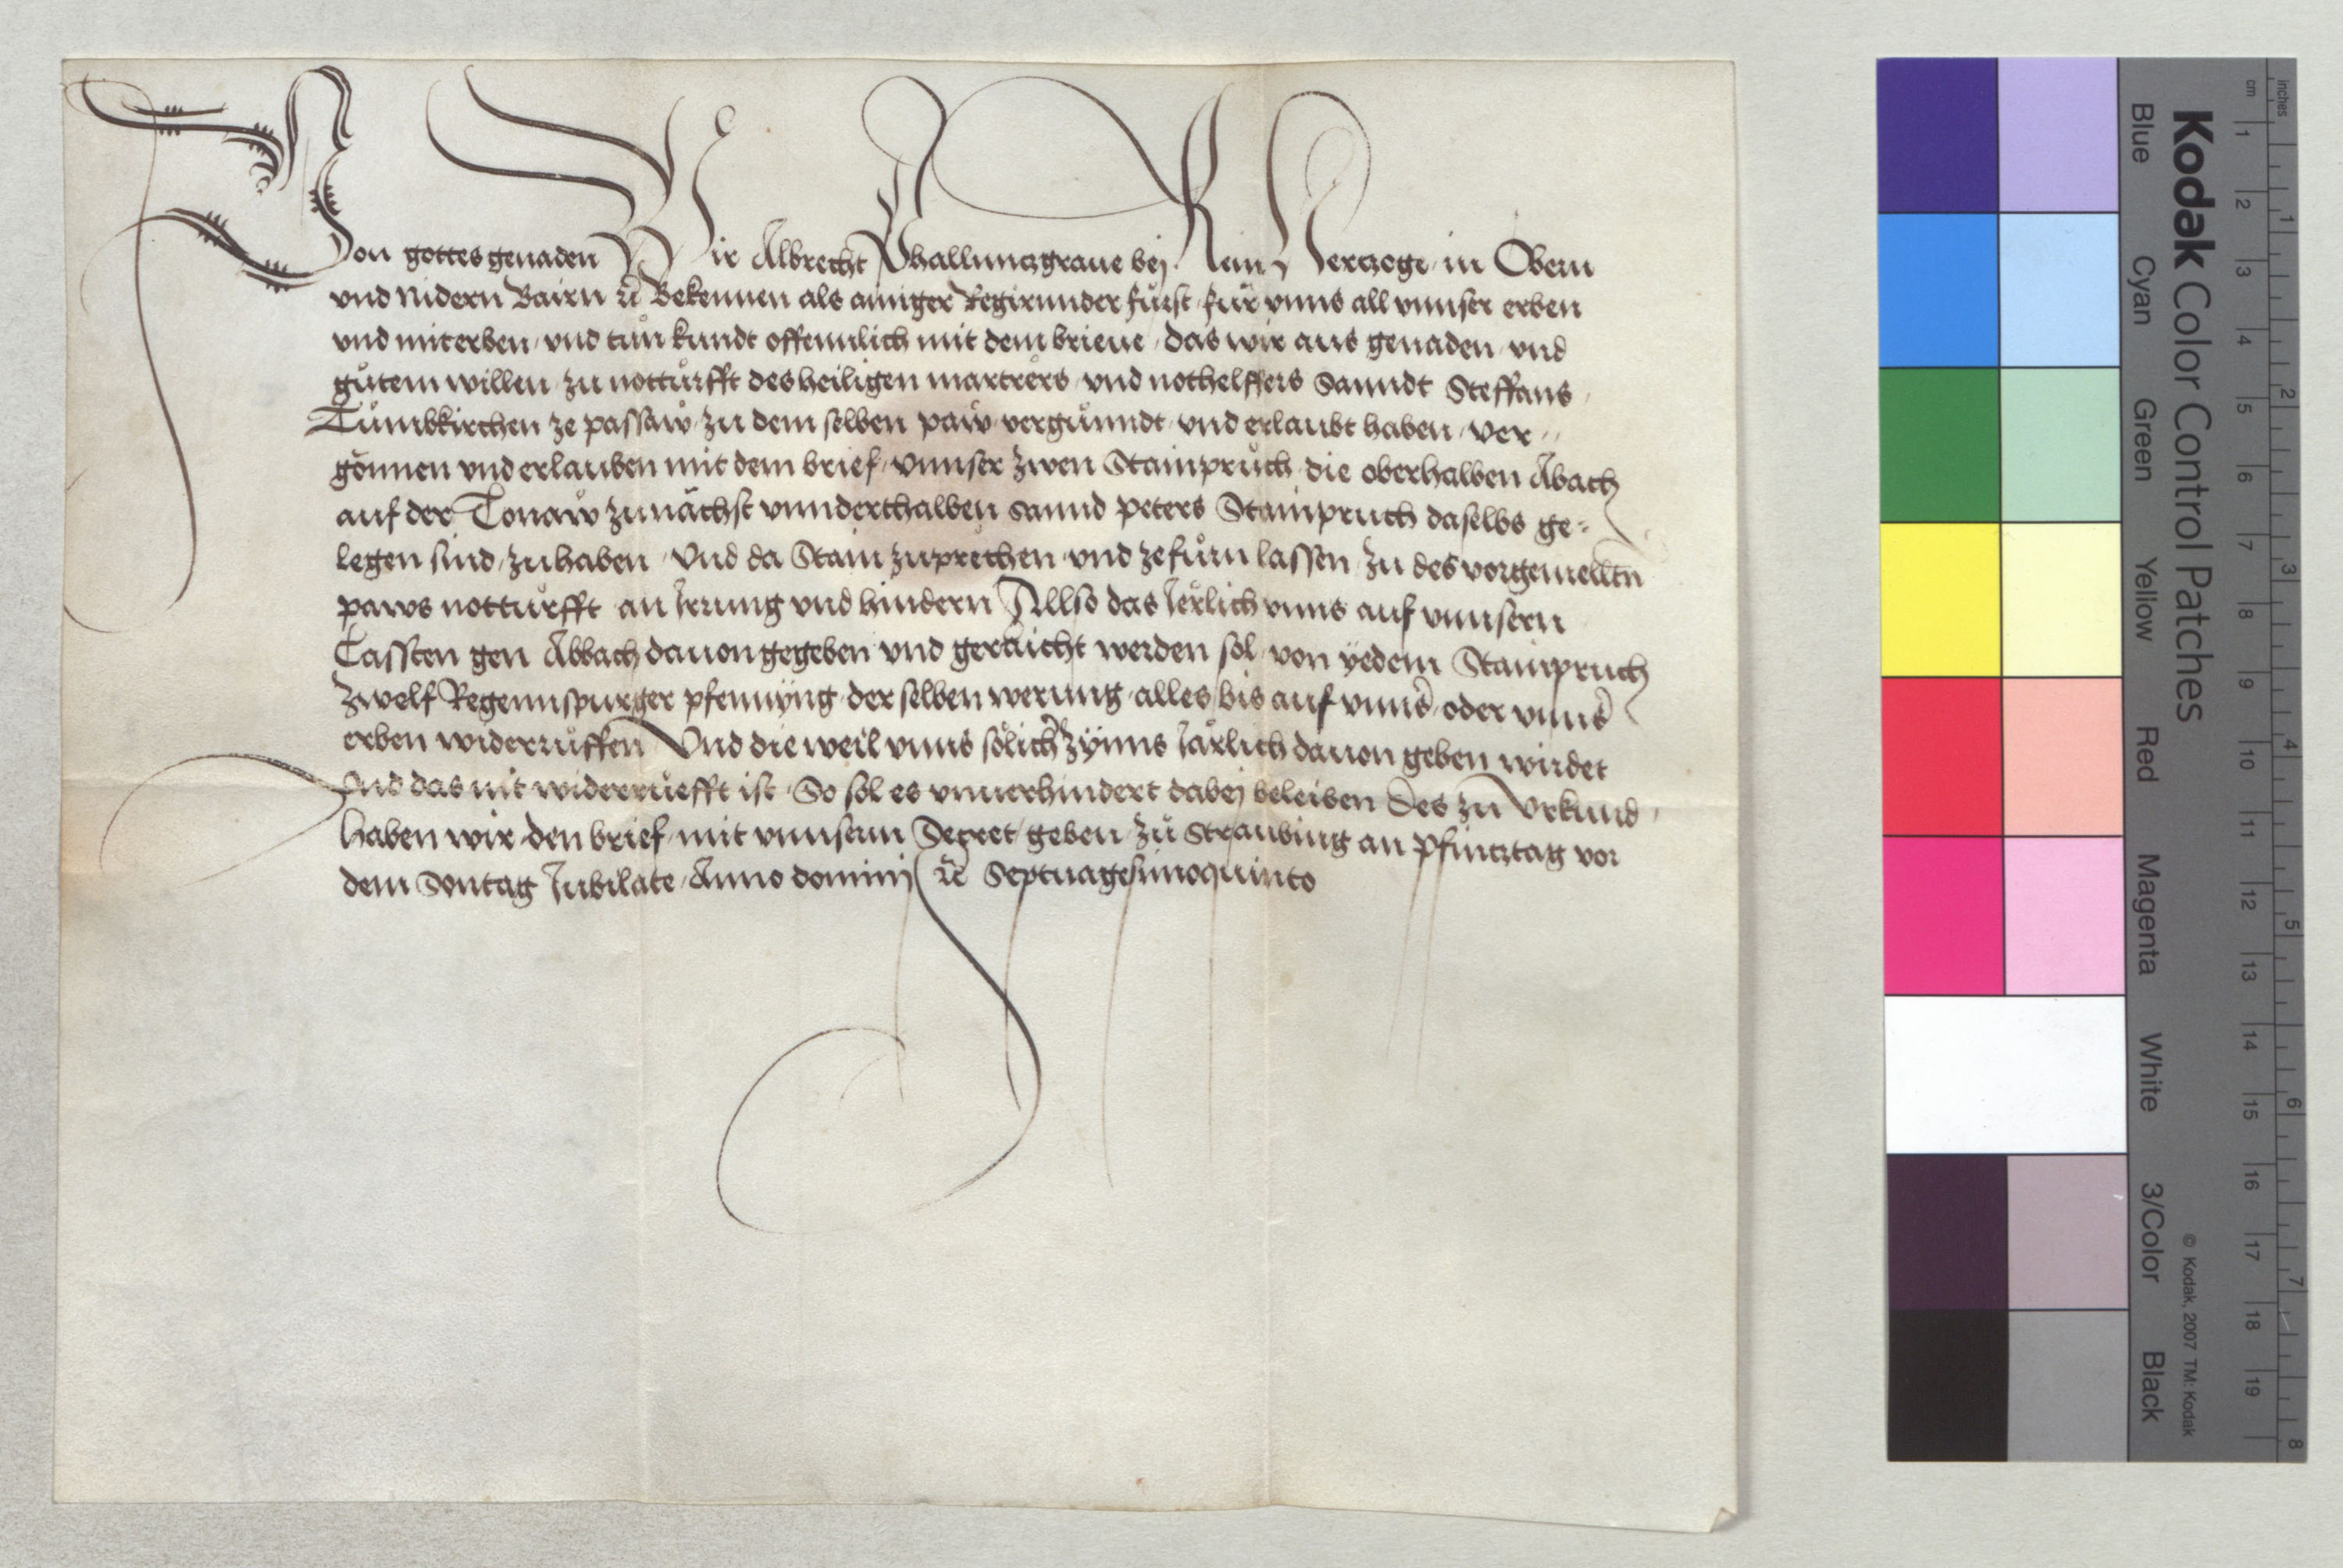 Von gottes genaden Wir Albrecht Phallnnczgraue bej Rein Herczoge in Obern
vnd Nidern Bairn ꝛc̃ Bekennen als ainiger Regirunder fürst für vnns all vnnser erben
vnd miterben vnd tůn kundt offennlich mit dem brieue das wir aus genaden vnd
gůtem willen zu notturfft des heiligen martrers vnd nothelffers Sanndt Steffans
Tůmbkirchen ze passaw zu dem selben paw vergůnndt vnd erlaubt haben ver
gönnen vnd erlauben mit dem brief vnnser zwen Stainprüch die oberhalben Abach
auf der Tonaw zunächst vnnderthalben sannd peters Stainpruch daselbs ge=
legen sind zuhaben Vnd da Stain zuprechen vnd zefürn lassen zu des vorgemelltn
paws notturfft an Irrung vnd hindern Allso das Ierlich vnns auf vnnsern
Cassten gen Abbach dauon gegeben vnd geraicht werden sol von yedem Stainpruch
zwelf Regennspurger pfennyng der selben werung alles bis auf vnns̃ oder vnns̃
erben widerrůffen Vnd die weil vnns sölich̃ zynns Järlich dauon geben wirdet
Vnd das nit widerrüefft ist So sol es vnuerhindert dabej beleiben Des zu Vrkund
haben wir den brief mit vnnserm Secret geben zu Straubing an Pfincztag vor
dem Sontag Jubilate Anno dominj ꝛc̃ Septuagesimoquinto
Kodak Color Control Patches
Blue Cyan Green Yellow Red Magenta White 3/Color Black
© Kodak, 2007 TM: Kodak
cm 1 2 3 4 5 6 7 8 9 10 11 12 13 14 15 16 17 18 19
inches 1 2 3 4 5 6 7 8